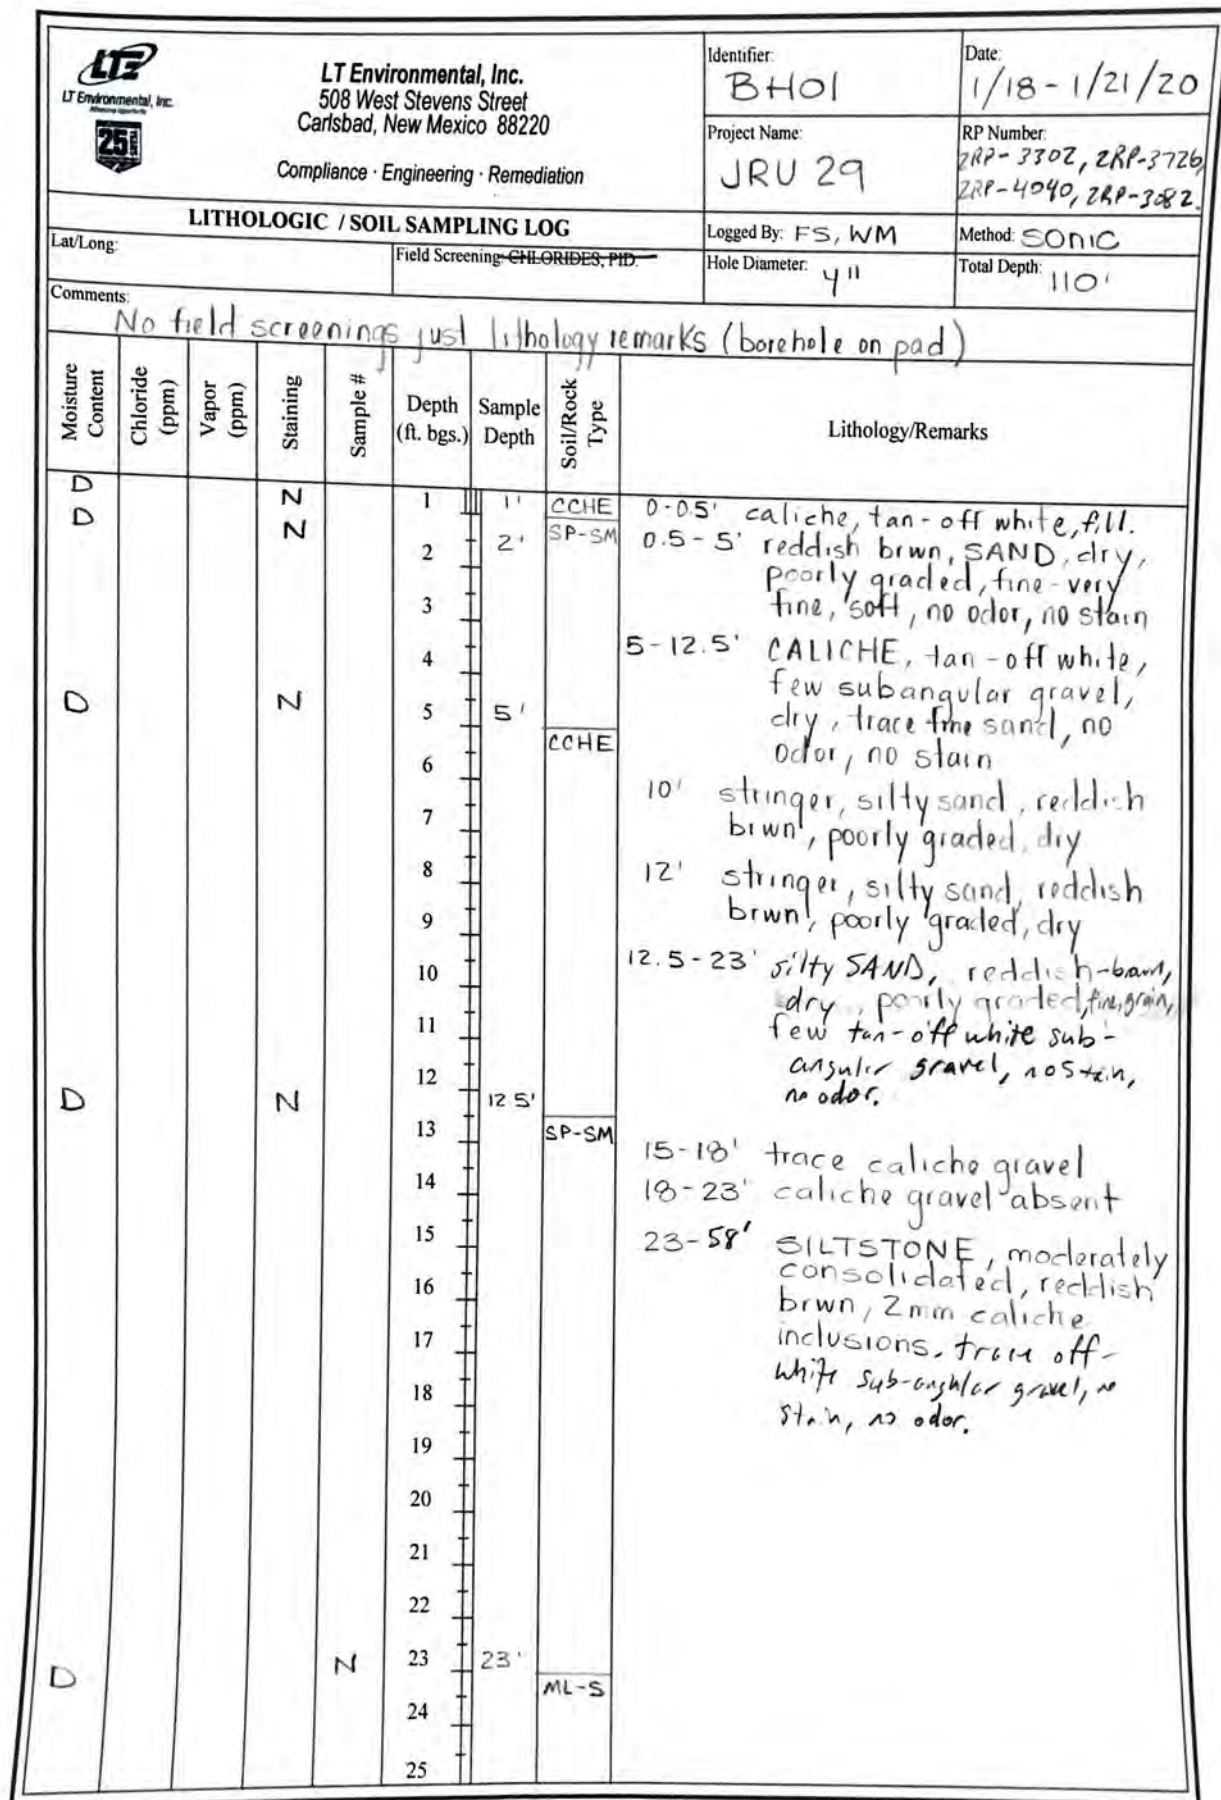 LTE
LT Environmental, Inc.
Advancing Opportunity
25
LT Environmental, Inc.
508 West Stevens Street
Carlsbad, New Mexico 88220
Compliance · Engineering · Remediation
Identifier:
BH01
Date:
1/18 - 1/21/20
Project Name:
JRU 29
RP Number:
2RP-3302, 2RP-3726,
2RP-4040, 2RP-3082.
LITHOLOGIC / SOIL SAMPLING LOG
Logged By: FS, WM
Method: SONIC
Lat/Long:
Field Screening: CHLORIDES, PID.
Hole Diameter: 4"
Total Depth: 110'
Comments:
No field screenings just lithology remarks (borehole on pad)
Moisture Content
Chloride (ppm)
Vapor (ppm)
Staining
Sample #
Depth (ft. bgs.)
Sample Depth
Soil/Rock Type
Lithology/Remarks
D N 1 1' CCHE 0-0.5' caliche, tan-off white, fill.
D N SP-SM 0.5-5' reddish brwn, SAND, dry,
2 2' poorly graded, fine-very
3 fine, soft, no odor, no stain
4 5-12.5' CALICHE, tan-off white,
few subangular gravel,
D N 5 5' dry, trace fine sand, no
CCHE odor, no stain
6
10' stringer, silty sand, reddish
7 brwn, poorly graded, dry
8 12' stringer, silty sand, reddish
9 brwn, poorly graded, dry
10 12.5-23' silty SAND, reddish-brown,
dry, poorly graded, fine grain,
11 few tan-off white sub-
angular gravel, no stain,
12 no odor.
D N 12.5'
13 SP-SM
15-18' trace caliche gravel
14 18-23' caliche gravel absent
15 23-58' SILTSTONE, moderately
consolidated, reddish
16 brwn, 2mm caliche
17 inclusions. trace off-
white sub-angular gravel, no
18 stain, no odor.
19
20
21
22
D N 23 23'
ML-S
24
25